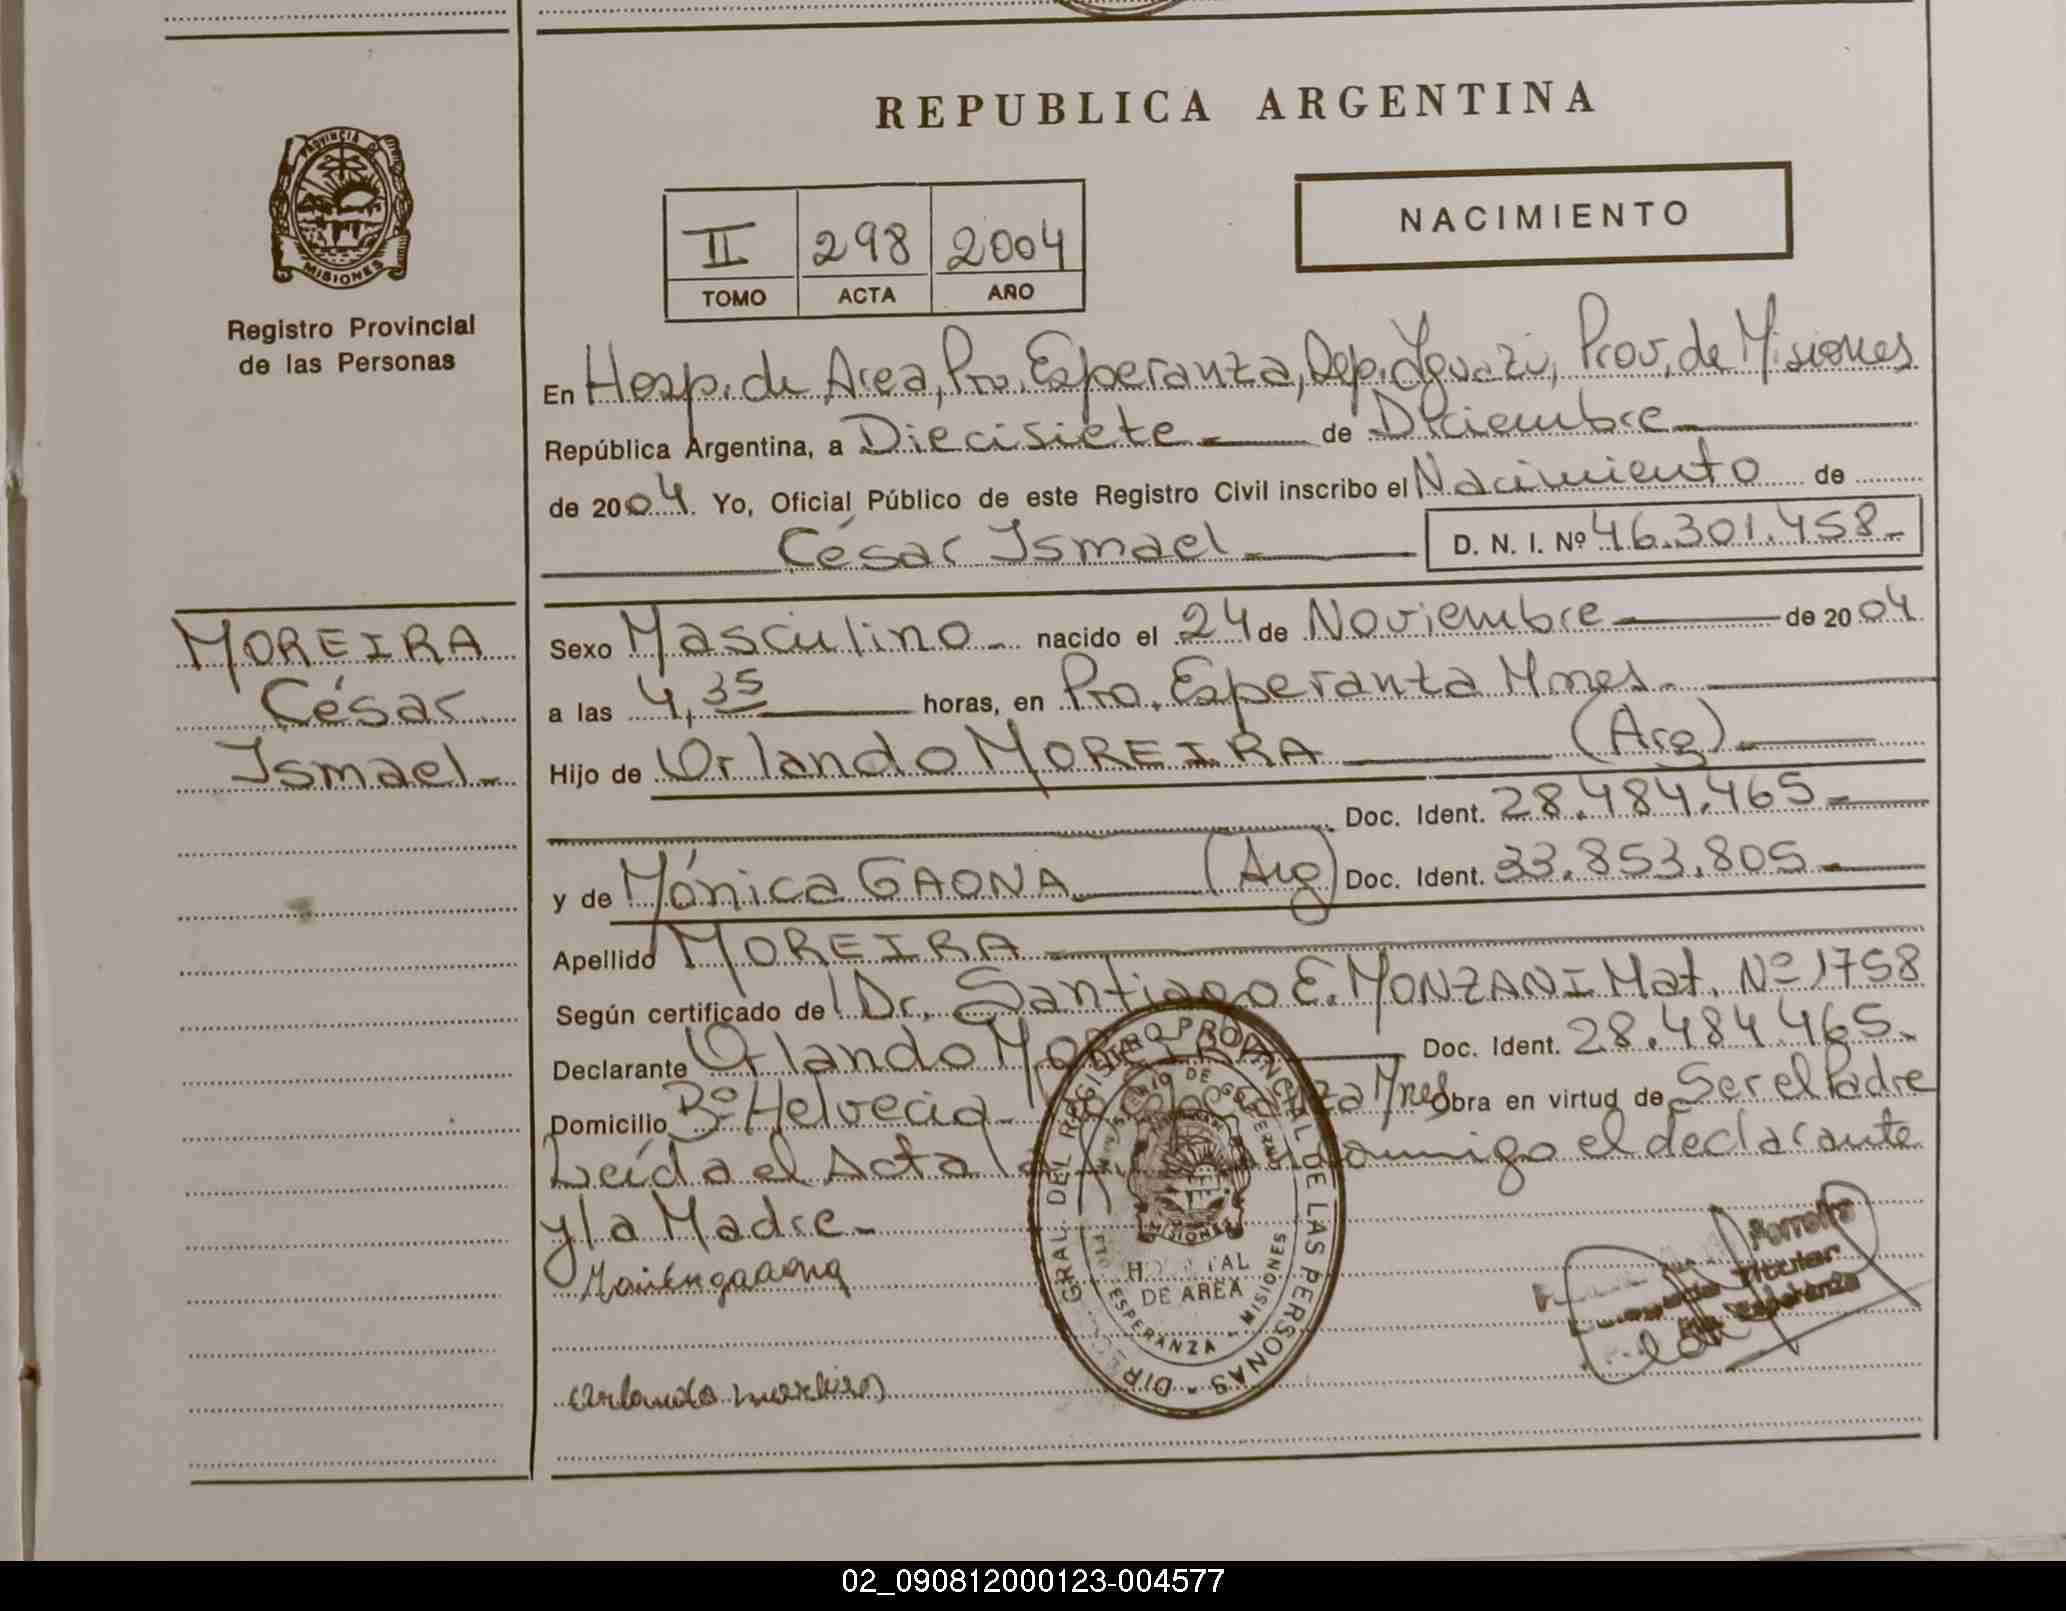 REPUBLICA ARGENTINA
PROVINCIA DE MISIONES
Registro Provincial
de las Personas
NACIMIENTO
II 298 2004
TOMO ACTA AÑO
En Hosp. de Area, Pto. Esperanza, Dep. Iguazú, Prov. de Misiones
República Argentina, a Diecisiete de Diciembre
de 2004 Yo, Oficial Público de este Registro Civil inscribo el Nacimiento de
César Ismael D. N. I. Nº 46.301.458
MOREIRA
César
Ismael
Sexo Masculino nacido el 24 de Noviembre de 2004
a las 4,35 horas, en Pto. Esperanza Mnes.
Hijo de Orlando MOREIRA (Arg)
Doc. Ident. 28.484.465
y de Mónica GAONA (Arg) Doc. Ident. 33.853.805
Apellido MOREIRA
Según certificado del Dr. Santiago E. MONZANI Mat. Nº 1758
Declarante Orlando Doc. Ident. 28.484.465
Domicilio Bº Helvecia Mnes Obra en virtud de Ser el Padre
Leída el Acta la conmigo el declarante
y la Madre
DIR. GRAL. DEL REGISTRO PROVINCIAL DE LAS PERSONAS
MINISTERIO DE GOBIERNO
MISIONES
HOSPITAL
DE AREA
PTO ESPERANZA - MISIONES
Titular
Pto. Esperanza
Orlando moreira
02_090812000123-004577